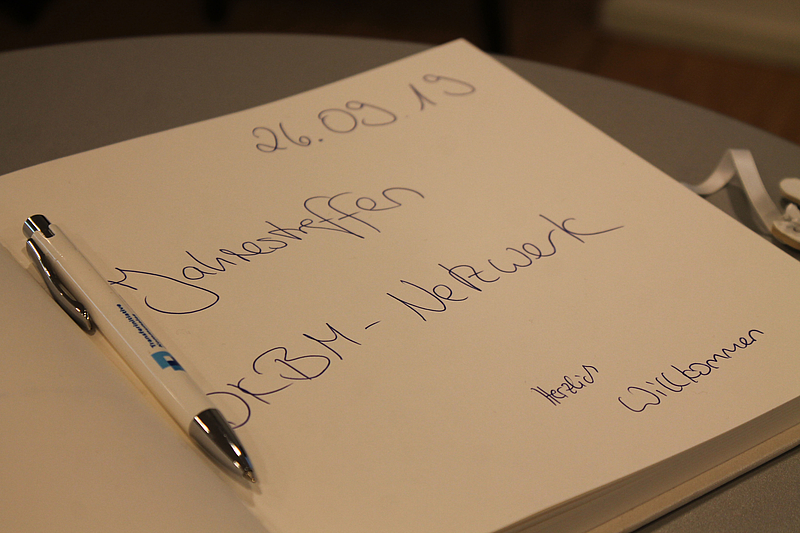 26.09.19
Jahrestreffen
DKBM - Netzwerk
Herzlich
Willkommen
Transferinitiative